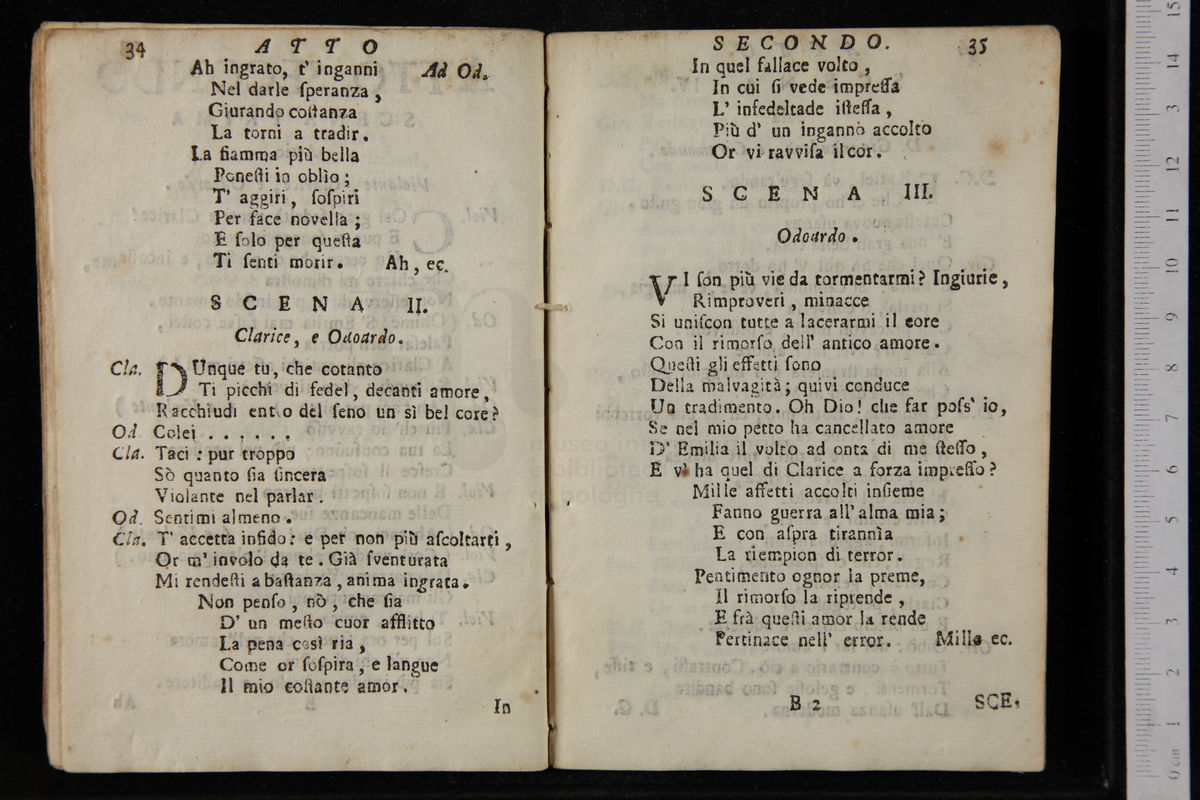 34 ATTO
Ah ingrato, t' inganni Ad Od.
Nel darle ſperanza,
Giurando coſtanza
La torni a tradir.
La fiamma più bella
Poneſti in oblìo;
T' aggiri, ſoſpiri
Per face novella;
E ſolo per queſta
Ti ſenti morir. Ah, ec.
SCENA II.
Clarice, e Odoardo.
Cla. DUnque tu, che cotanto
Ti picchi di fedel, decanti amore,
Racchiudi entro del ſeno un sì bel core?
Od. Colei . . . . . .
Cla. Taci: pur troppo
Sò quanto ſia ſincera
Violante nel parlar.
Od. Sentimi almeno.
Cla. T' accetta infido: e per non più aſcoltarti,
Or m' involo da te. Già ſventurata
Mi rendeſti abaſtanza, anima ingrata.
Non penſo, nò, che ſia
D' un meſto cuor afflitto
La pena così ria,
Come or ſoſpira, e langue
Il mio coſtante amor.
In
SECONDO. 35
In quel fallace volto,
In cui ſi vede impreſſa
L' infedeltade iſteſſa,
Più d' un ingannò accolto
Or vi ravviſa il cor.
SCENA III.
Odoardo.
VI ſon più vie da tormentarmi? Ingiurie,
Rimproveri, minacce
Si uniſcon tutte a lacerarmi il core
Con il rimorſo dell' antico amore.
Queſti gli effetti ſono
Della malvagità; quivi conduce
Un tradimento. Oh Dio! che far poſs' io,
Se nel mio petto ha cancellato amore
D' Emilia il volto ad onta di me ſteſſo,
E vi ha quel di Clarice a forza impreſſo?
Mille affetti accolti inſieme
Fanno guerra all' alma mia;
E con aſpra tirannìa
La riempion di terror.
Pentimento ognor la preme,
Il rimorſo la riprende,
E frà queſti amor la rende
Pertinace nell' error. Mille ec.
B 2 SCE.
museo
biblioteca
bologna
0 cm 1 2 3 4 5 6 7 8 9 10 11 12 13 14 15